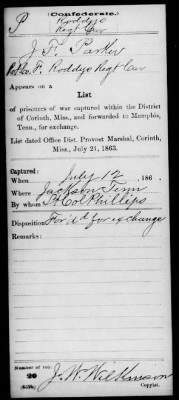 (Confederate.)
P Roddys
Regt Cav
J. F. Parker
Co. F. Roddys Regt Cav
Appears on a
List
of prisoners of war captured within the District
of Corinth, Miss., and forwarded to Memphis,
Tenn., for exchange.
List dated Office Dist. Provost Marshal, Corinth,
Miss., July 21, 1863.
Captured:
When July 12, 186 .
Where Jackson Tenn
By whom Lt Col Phillips
Disposition For'd for exchange
Remarks:
Number of roll:
20
J. W. Wilkinson
Copyist.